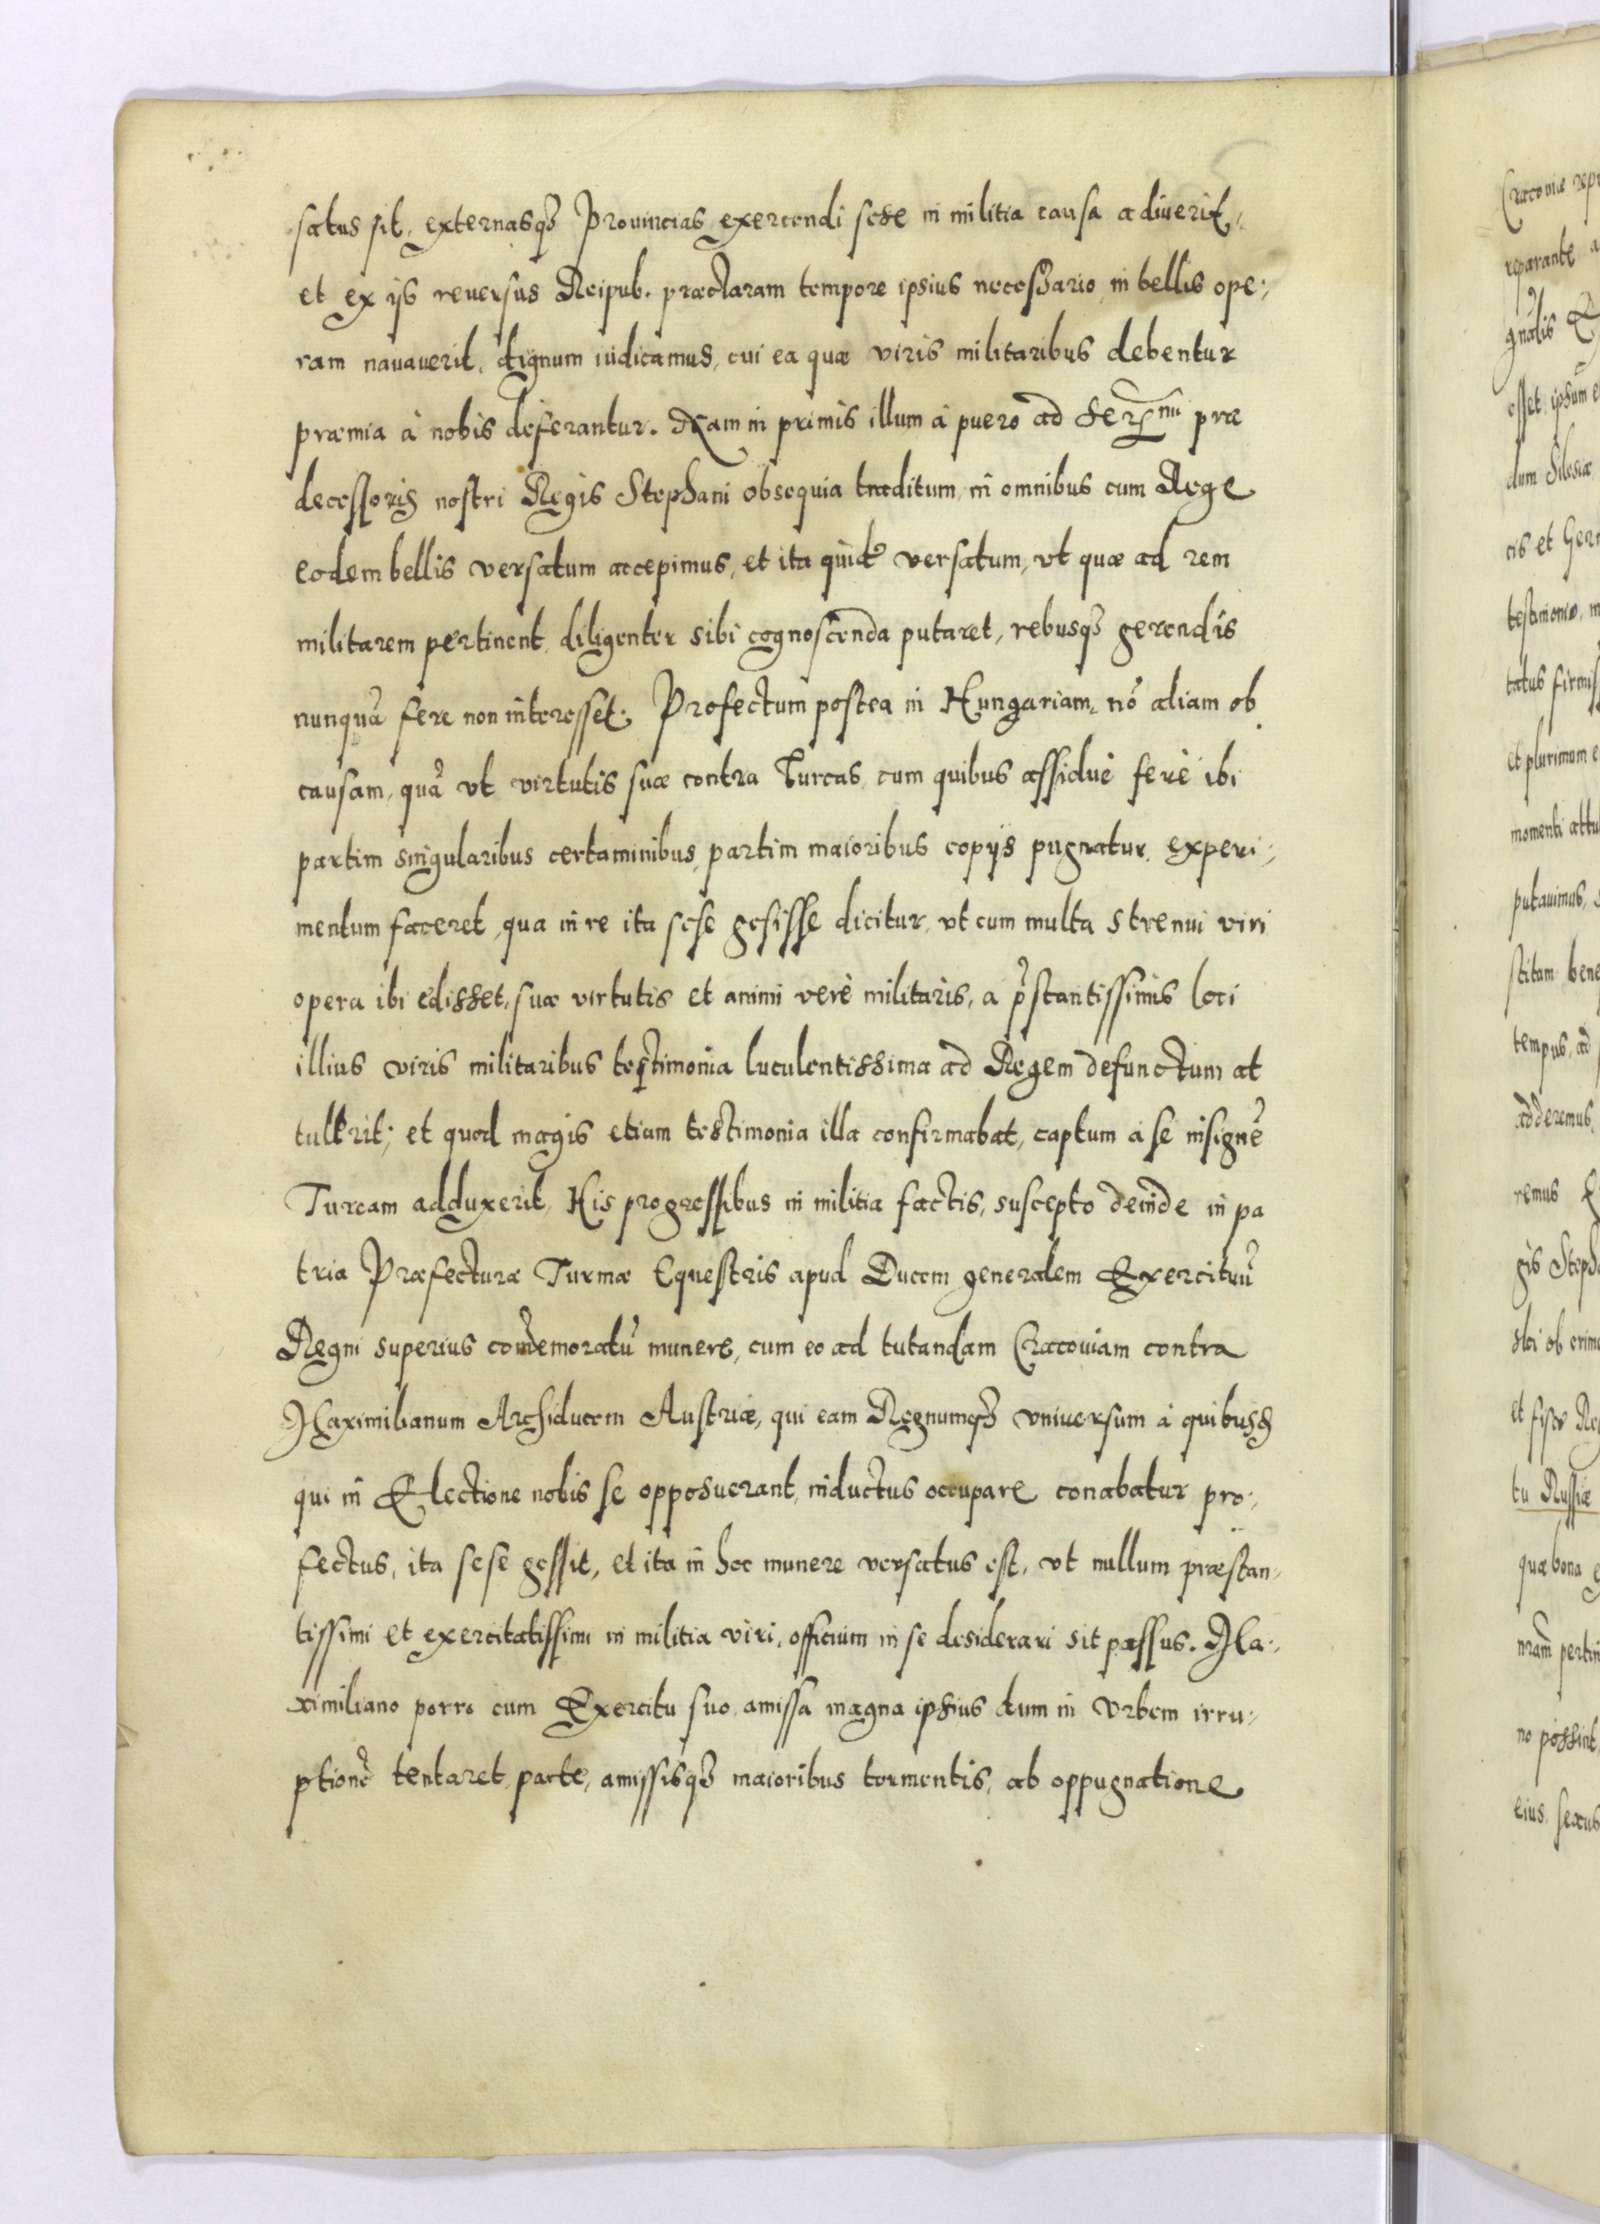 satus sit, externasq3 Prouincias exercendi sese in militia causa adiuerit,
et ex ijs reuersus Reipub. præclaram tempore ipsius necessario in bellis ope:,
ram nauauerit, dignum iudicamus, cui ea quæ viris militaribus debentur
præmia à nobis deferantur. Nam in primis illum à puero ad Ser.mi præ
decessoris nostri Regis Stephani obsequia traditum, in omnibus cum Rege
eodem bellis versatum accepimus, et ita quidē versatum, vt quæ ad rem
militarem pertinent, diligenter sibi cognoscenda putaret, rebusq3 gerendis
nunquā fere non interesset. Profectum postea in Hungariam, nō aliam ob
causam, quā vt virtutis suæ contra Turcas, cum quibus assiduè ferè ibi
partim singularibus certaminibus, partim maioribus copijs pugnatur, experi:,
mentum faceret, qua in re ita sese gesisse dicitur, vt cum multa strenui viri
opera ibi edisset, suæ virtutis et animi verè militaris, a p̄stantissimis loci
illius viris militaribus testimonia luculentissima ad Regem defunctum at
tulerit; et quod magis etiam testimonia illa confirmabat, captum à se insignē
Turcam adduxerit, His progressibus in militia factis, suscepto deinde in pa
tria Præfecturæ Turmæ Equestris apud Ducem generalem Exercituū
Regni superius com̄emoratū munere, cum eo ad tutandam Cracouiam contra
Maximilianum Archiducem Austriæ, qui eam Regnumq3 vniuersum à quibusd
qui in Electione nobis se opposuerant, inductus occupare conabatur pro:,
fectus, ita sese gessit, et ita in hoc munere versatus est, vt nullum præstan:,
tissimi et exercitatissimi in militia viri, officium in se desiderari sit passus. Ma:,
ximiliano porro cum Exercitu suo, amissa magna ipsius dum in Vrbem irru:,
ptionē tentaret, parte, amissisq3 maioribus tormentis, ab oppugnatione
Cracouiæ
reparante
gnalis
esset, ipsum
dum Silesiæ
cis et
testimonio,
tatus
et plurimum
momenti
putauimus,
stitam
tempus, ad
adderemus,
remus
gis
et fisco
tu Russiæ
quæ bona
no possint,
eius